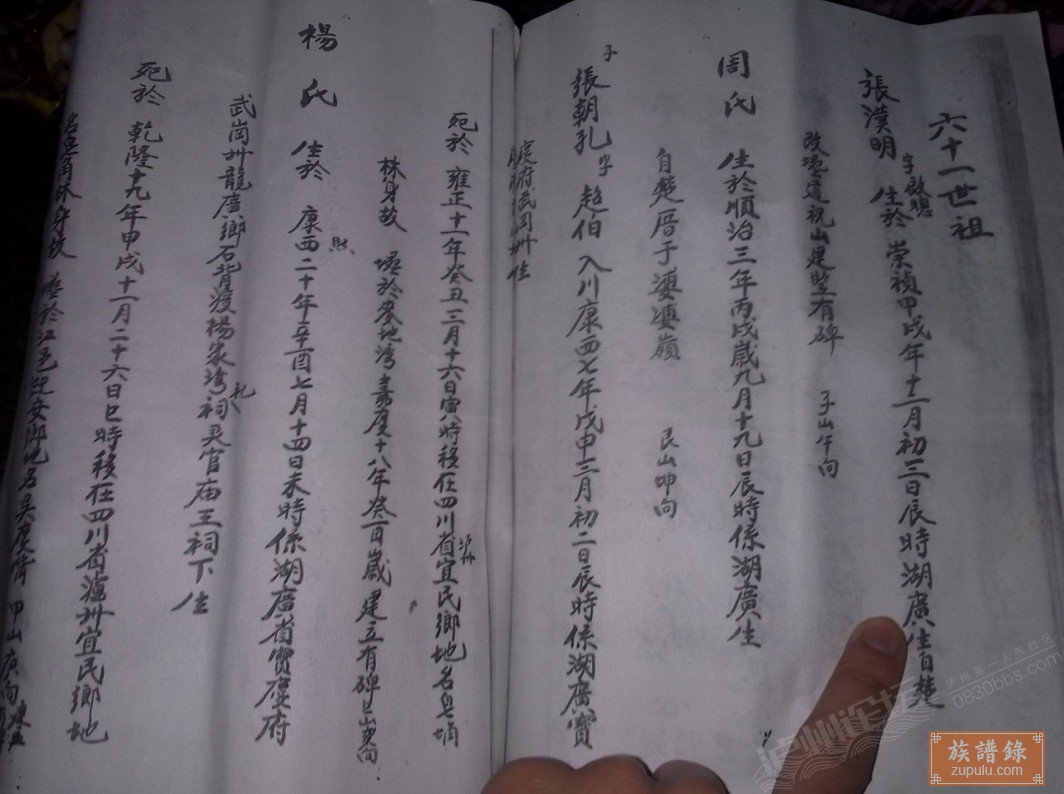 六十一世祖
張漢明 字啟聰 生於 崇禎甲戌年十二月初三日辰時湖廣生自楚
改壜道祝山建監有碑 子山午向
周氏 生於順治三年丙戌歲九月十九日辰時係湖廣生
自楚厝于婆婆嶺 艮山坤向
子
張朝孔 字 超伯 入川康西七年戊申三月初二日辰時係湖廣寶
慶府武岡州生
死於 雍正十一年癸丑三月十六日寅時移在四川省瀘州宜民鄉地名皂角
林身故 塟於 地灣嘉慶十八年癸酉歲建立有碑巳山 向
楊氏 生於 康西熙二十年辛酉七月十四日未時係湖廣省寶慶府
武崗州龍廣鄉石背渡楊家灣礼祠灵官庙王祠下生
死於 乾隆十九年甲戌十一月二十六日巳時移在四川省瀘州宜民鄉地
名皂角林身故 塟於江邑 安鄉地名吳 甲山庚向
瀘州第一人气社区
0830bbs.com
族譜錄
zupulu.com